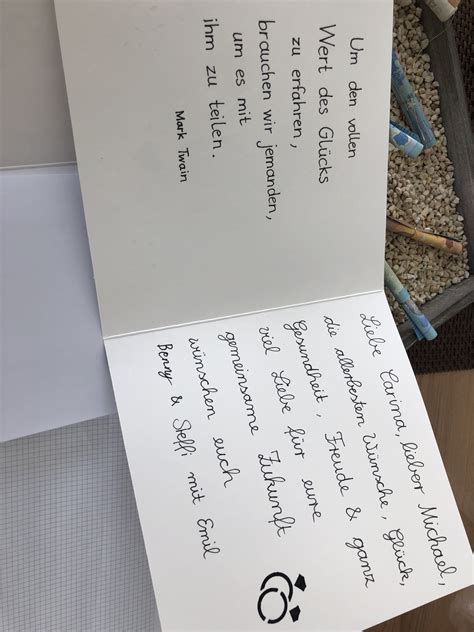 Um den vollen
Wert des Glücks
zu erfahren,
brauchen wir jemanden,
um es mit
ihm zu teilen.
Mark Twain
Liebe Carina, lieber Michael,
die allerbesten Wünsche, Glück,
Gesundheit, Freude & ganz
viel Liebe für eure
gemeinsame Zukunft
wünschen euch
Benny & Steffi mit Emil